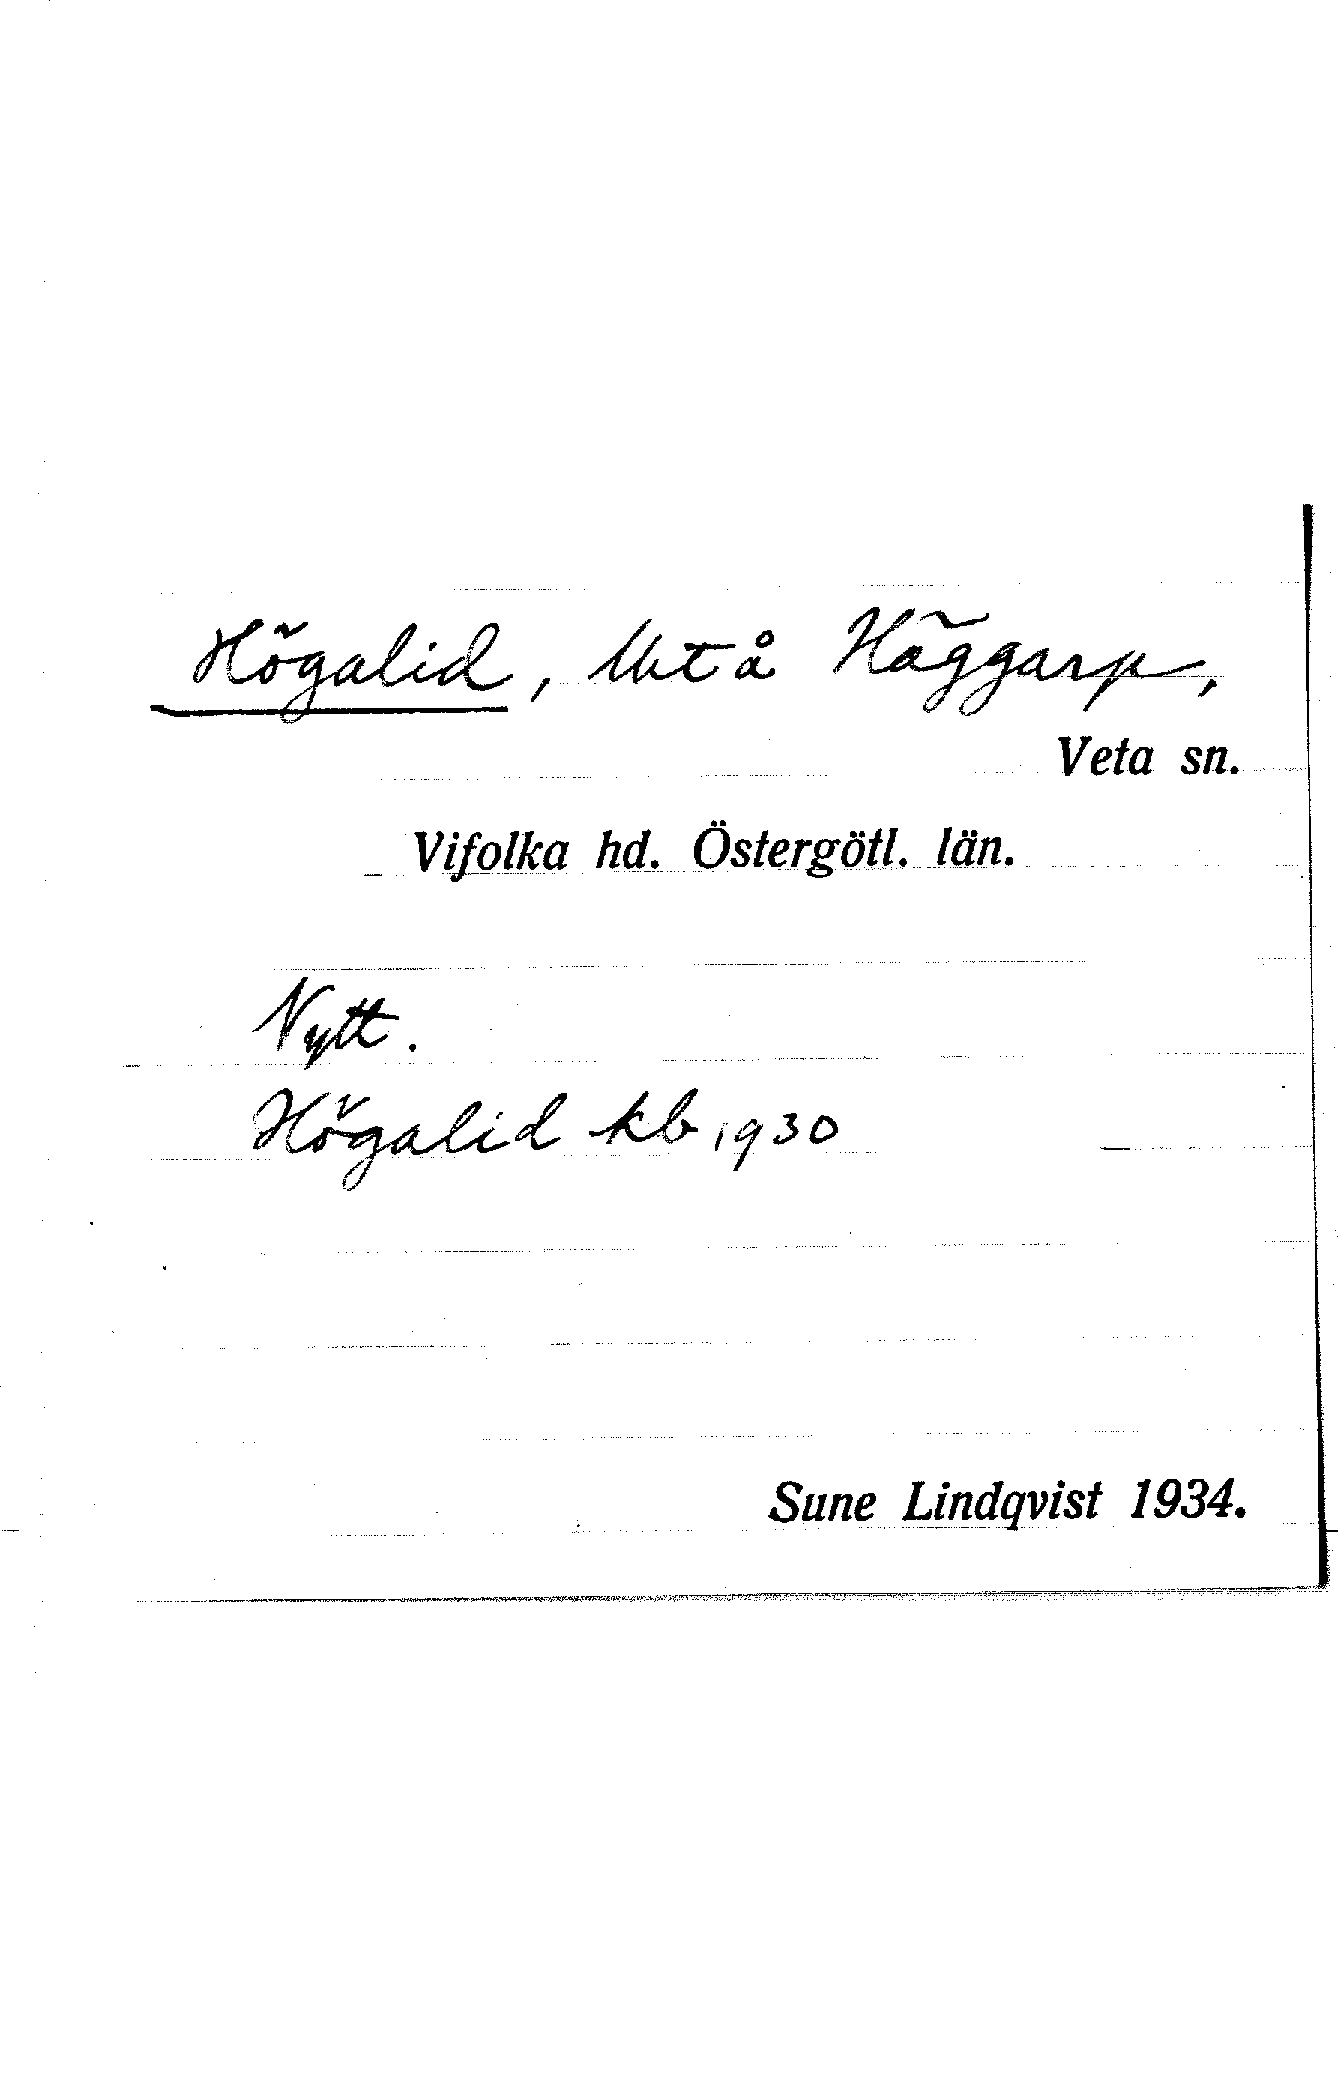 Högalid, lht å Häggarp,
Veta sn.
Vifolka hd. Östergötl. län.
Nytt.
Högalid kb 1930
Sune Lindqvist 1934.